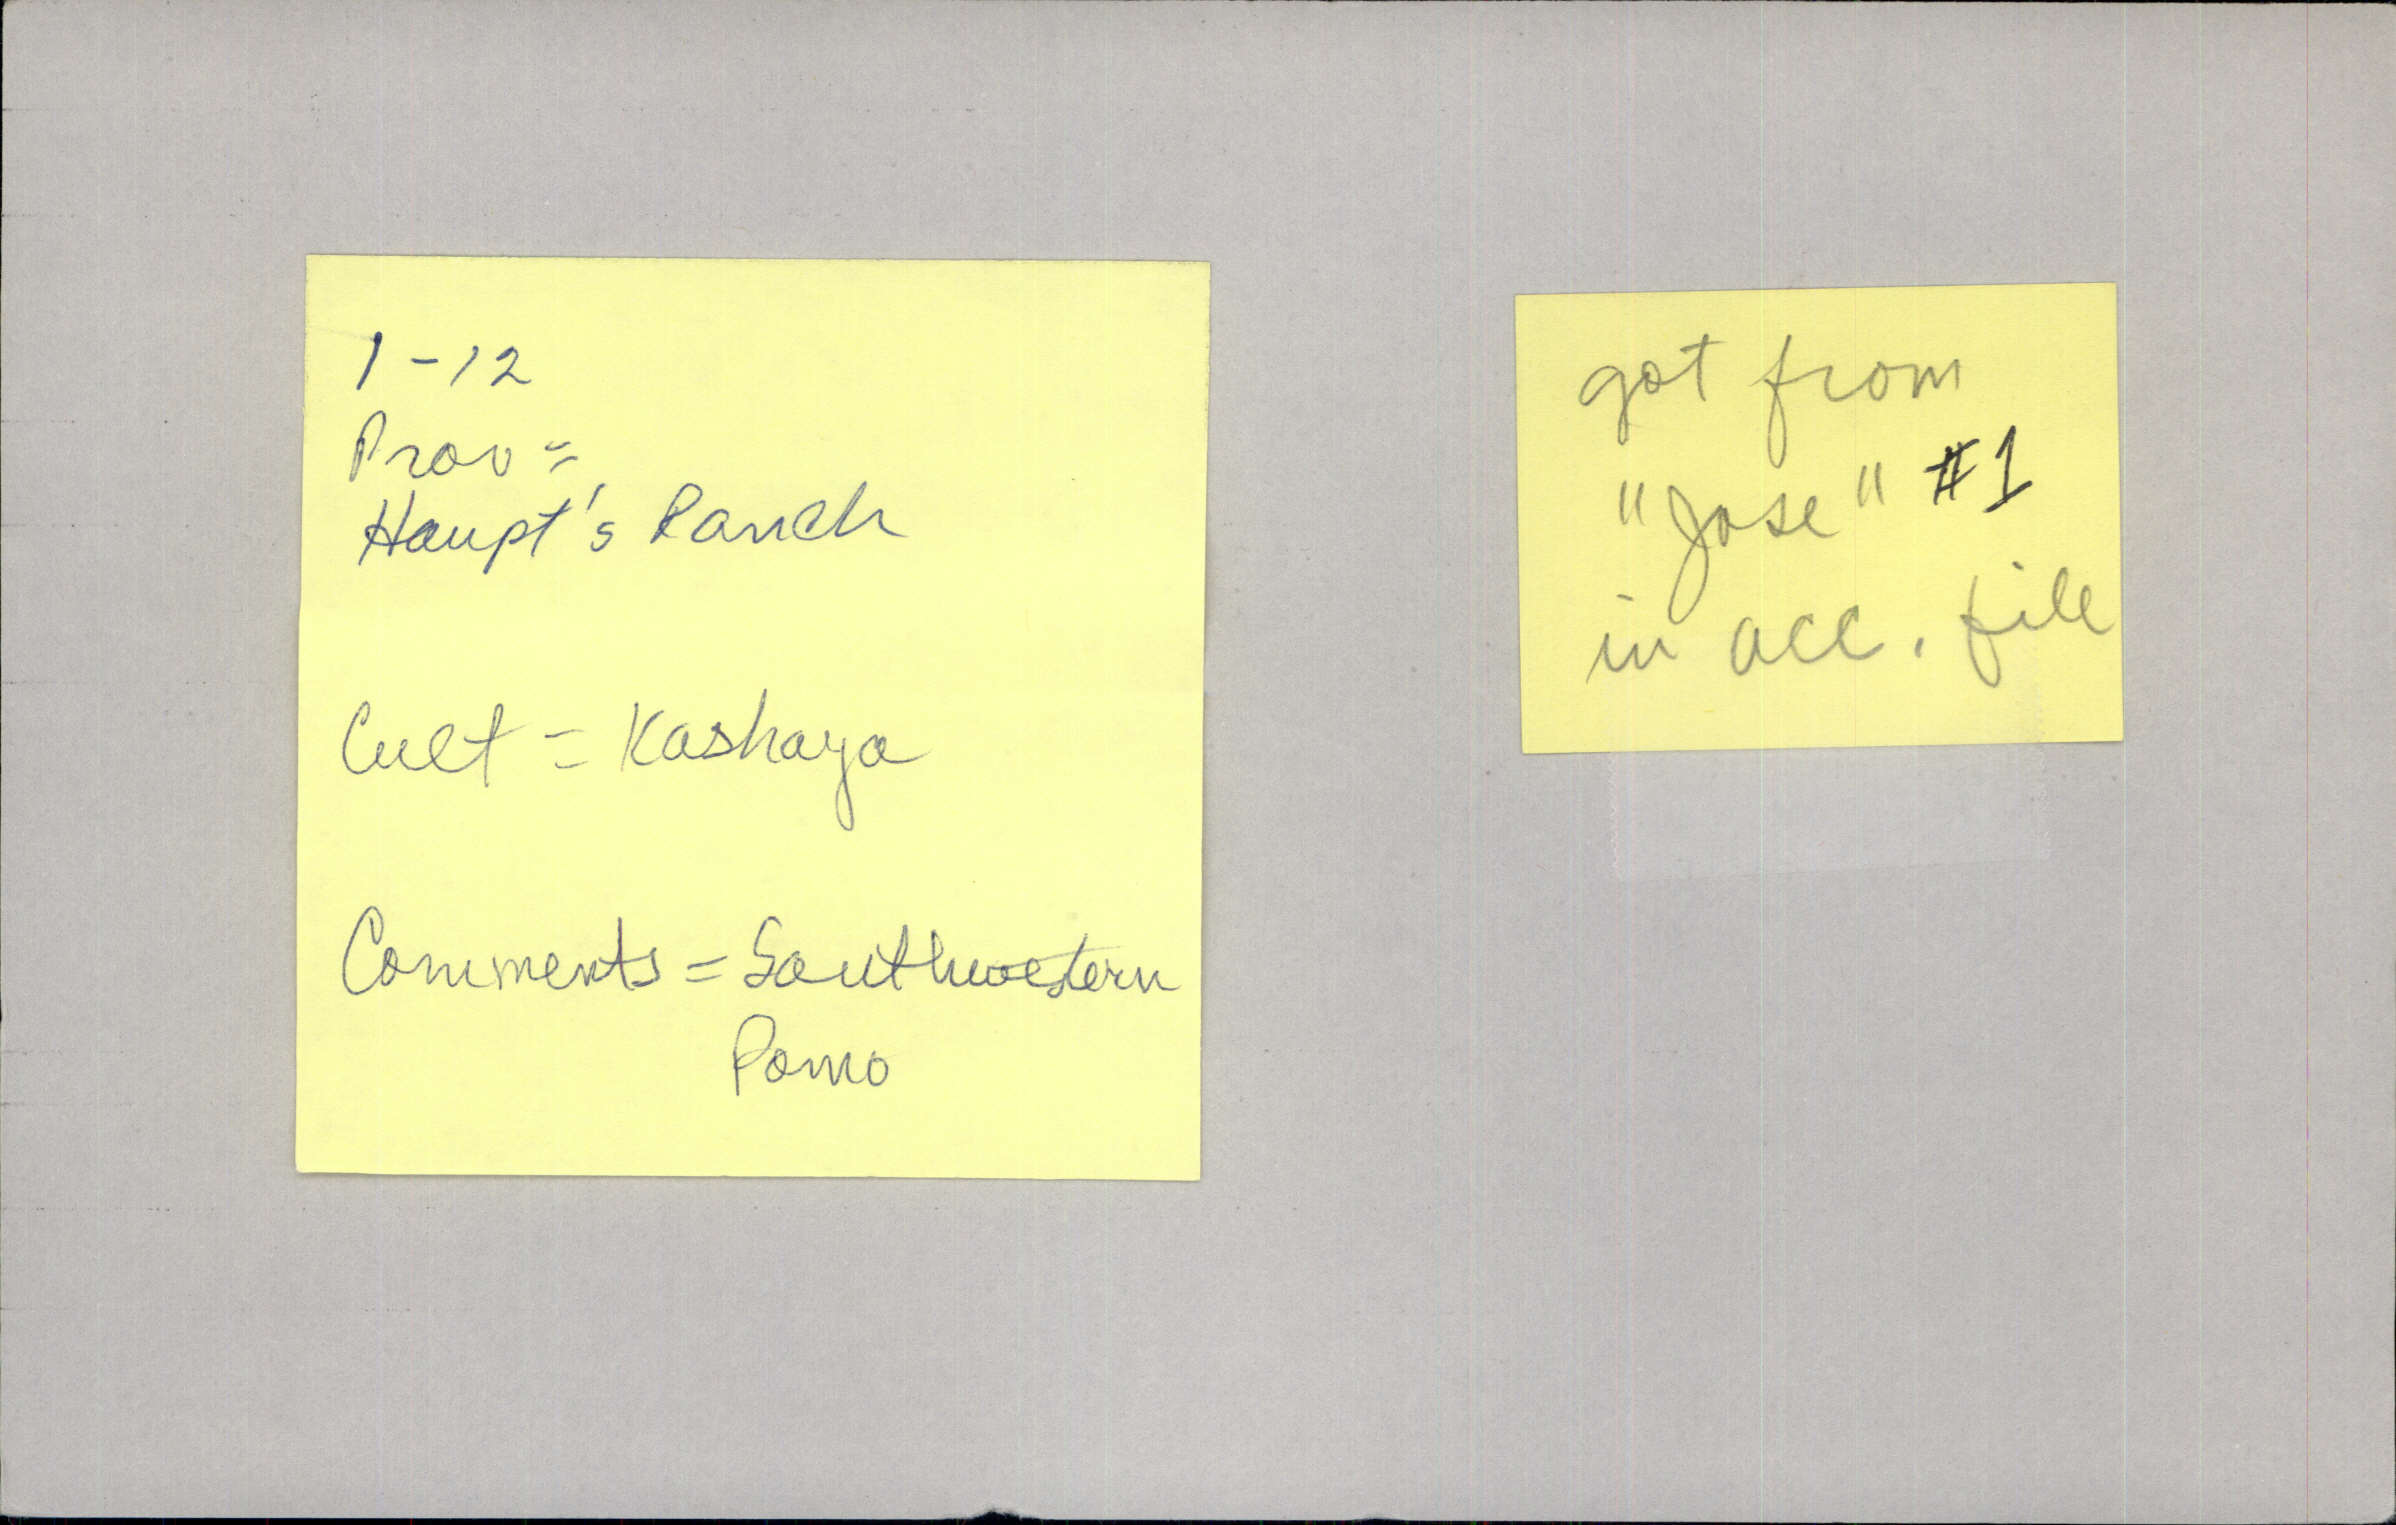 1-12
Prov =
Haupt's Ranch
Cult = Kashaya
Comments = Southwestern
Pomo
got from
"Jose" #1
in acc. file